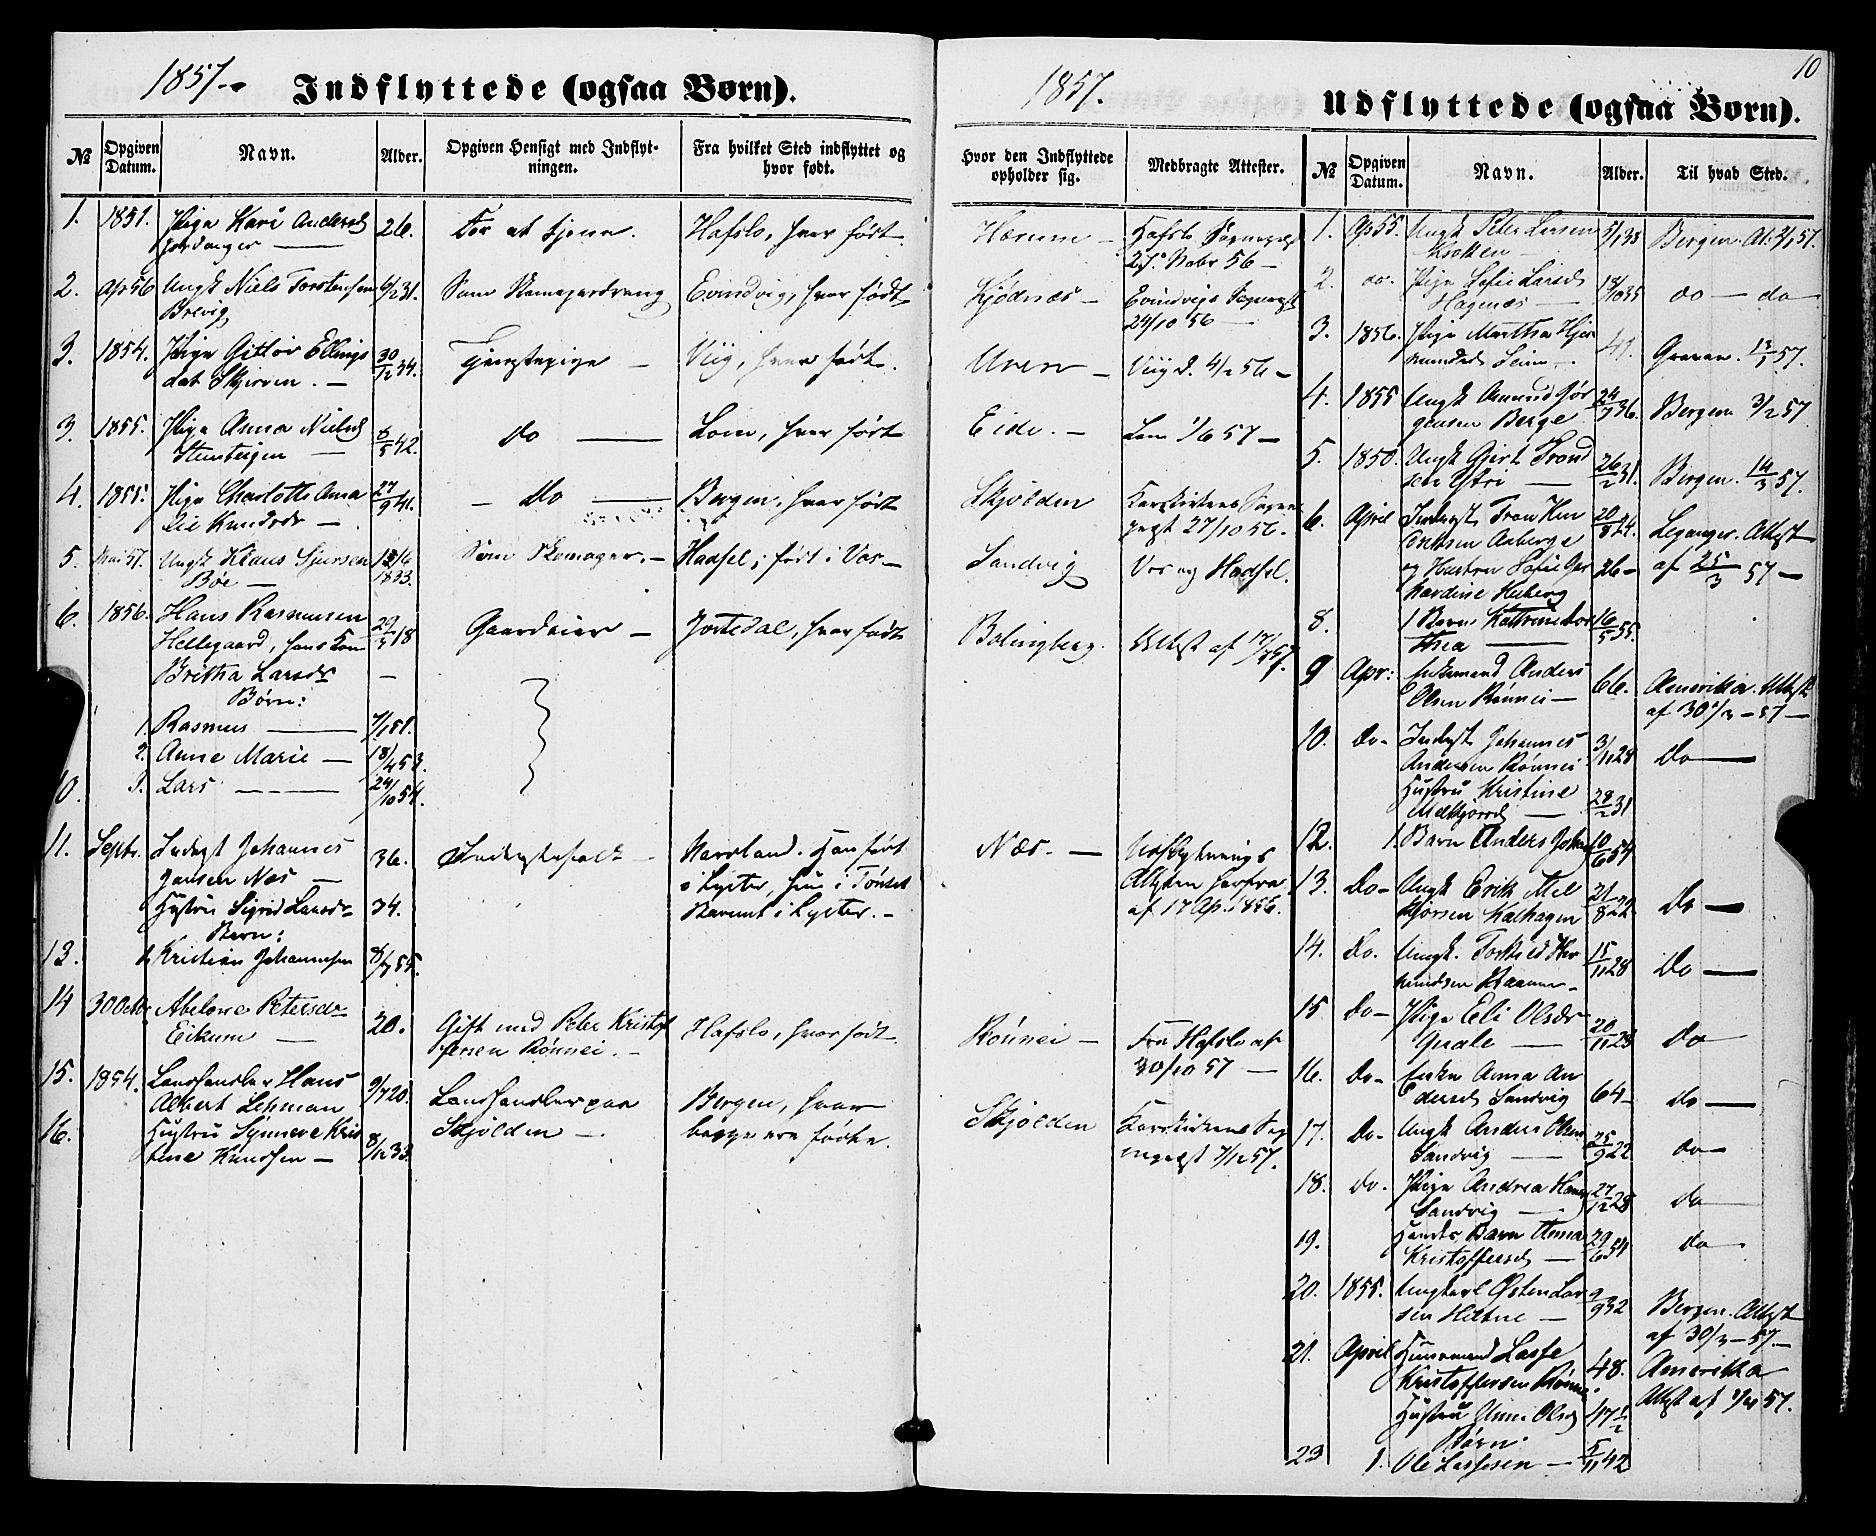 1857.
Indflyttede (ogsaa Børn).
№ Opgiven Datum. Navn. Alder. Opgiven Hensigt med Indflyt-ningen. Fra hvilket Sted indflyttet og hvor født.
Hvor den Indflyttede opholder sig. Medbragte Attester.
1. 1851. Pige Kari Andersd 26. For at tjene. Hafslo, hvor født. Hærum
27 Nobr 56
2. Apr 56 Ungk Niels Torstensen 31. Evindvig, hvor født Kjødnæs Evindvigs
Brevig 24/10 56
3. 1854. Pige Gittøe Ellings 30/12 34. Tjenestepige Viig, hvor født. Uren Viig d. 4/2 56
dat Skjerven.
3. 1855. Pige Anna Nielsd 8/5 42. do Lom, hvor født Eide. Lom 1/6 57
4. 1855. Pige Charlotte Ama 27/9 41. Do Bergen, hvor født Skjolden Korskirkens Sogne
lie Knudsdr 27/10 56.
5. Mai 57. Ungk Klaus Sjursen 1833. Som Skomager. Hadsel, født i Vos Sandvig Vos og Hadsel.
Bøe
6. 1856. Hans Rasmusen 29/3 18 Gaardeier Jostedal, hvor født Bolingberg. Attest af 17/7 57.
Hellegaard, hans Kone
Britha Larsdr
Børn:
1. Rasmus 7/1 51.
2. Anne Marie 18/4 53.
10. 3. Lars 24/10 54.
11. Septr. Inderst Johannes 36. Nordland. Han født Næs. Udflytnings
Jansen Næs i Lyster, hun i Attesten herfra
Hustru Sigrid Larsdr 34. Barnet i Lyster. af 17 Ap. 1856.
Børn:
13. 1. Kristian Johannesen 8/7 55.
14 30 Octbr Abelone Petersdr 20. Gift med Peter Kristof Hafslo, hvor født. Rønnei Fra Hafslo af
Eikum fersen Rønnei. 30/10 57
15. 1854. Landhandler Hans 9/7 20. Landhandler paa Bergen, hvor Skjolden Korskirkens Sog
Albert Lehman Skjolden begge ere fødte. 7/12 57.
16. Hustru Synneve Kris 8/12 33.
tine Knudsen
1857.
10
Udflyttede (ogsaa Børn).
№ Opgiven Datum. Navn. Alder. Til hvad Sted.
1. Ap 55. Ungk Peter Larsen 5/1 35 Bergen. At. 2/1 57.
2. do. Pige Sofie Larsd 18/10 35 do do
3. 1856. Pige Martha Hjer 41. Graven. 13/1 57.
mundsd Seim
4. 1855 Ungk Amund Jør 24/7 36. Bergen 3/2 57.
gensen Berge
5. 1850. Ungk Gjert Trond 26/2 31. Bergen. 14/3 57.
sen Ytri
6. April Inderst 20/8 24. Leganger. Attest
Eriksen Aaberge af 25/3 57
og Hustru Sofie Ger 26
8. 1 Barn Kathrine Dor 16/5 55
thea
9 Apr: Anders 66. Amerika. Attest
Olsen Rønnei af 30/3 57
10. Do Inderst Johannes 3/11 28 Do
Andersen Rønnei
Hustru Kristine 28/2 31
12. 1. Barn Anders Johan 10/6 54
13. Do Ungk Erik Mel 21/8 22 Do
kjorsen Kalhagen
14. Do. Ungk. Torkild Her 15/11 28 Do
mundsen
15 Do Pige Eli Olsdr 20/11 23 Do
Qvale
16. Do Enke Anna An 64 do
dersd Sandvig
17. Do Ungk Anders Olsen 25/9 22 do
Sandvig
18. do. Pige Andrea Hans 27/12 28 do
Sandvig
19. Hendes Barn Anna 29/6 54 do
Kristoffersd
20. 1855. Ungkarl Østen Lar 9/9 32 Bergen. Attest
sen Heltne af 30/3 57
21. April Huusmand Lasse 48. Amerika
Kristoffersen Rønnei Attest af 1/4 57.
Hustru Anne Olsd 47 1/2
Børn:
23 1. Ole Lassesen 5/11 42